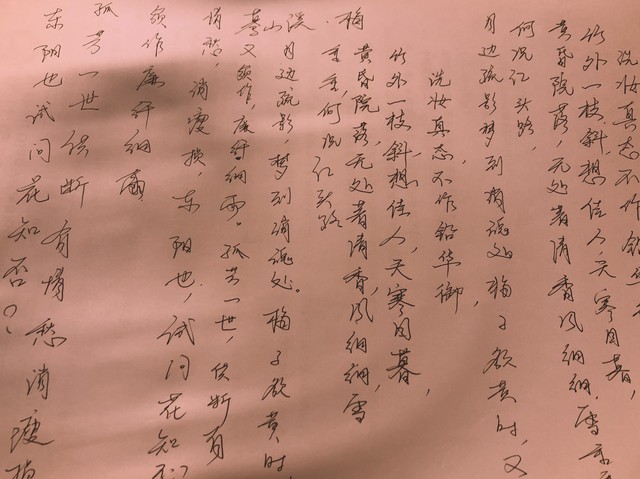 洗妆真态不作铅华
竹外一枝斜,想佳人,天寒日暮,
黄昏院落,无处著清香风细细,雪垂
何况江头路,
月边疏影梦到消魂处梅子欲黄时,又
蓦山溪.梅
洗妆真态,不作铅华御,
竹外一枝斜,想佳人,天寒日暮,
黄昏院落,无处著清香,风细细,雪
垂垂,何况江头路
月边疏影,梦到消魂处。梅子欲黄时,
又须作,廉纤细雨。孤芳一世,供断有
情愁,消瘦损,东阳也,试问花知否?
须作廉纤细雨
孤芳一世供断有情愁消瘦损
东阳也试问花知否?